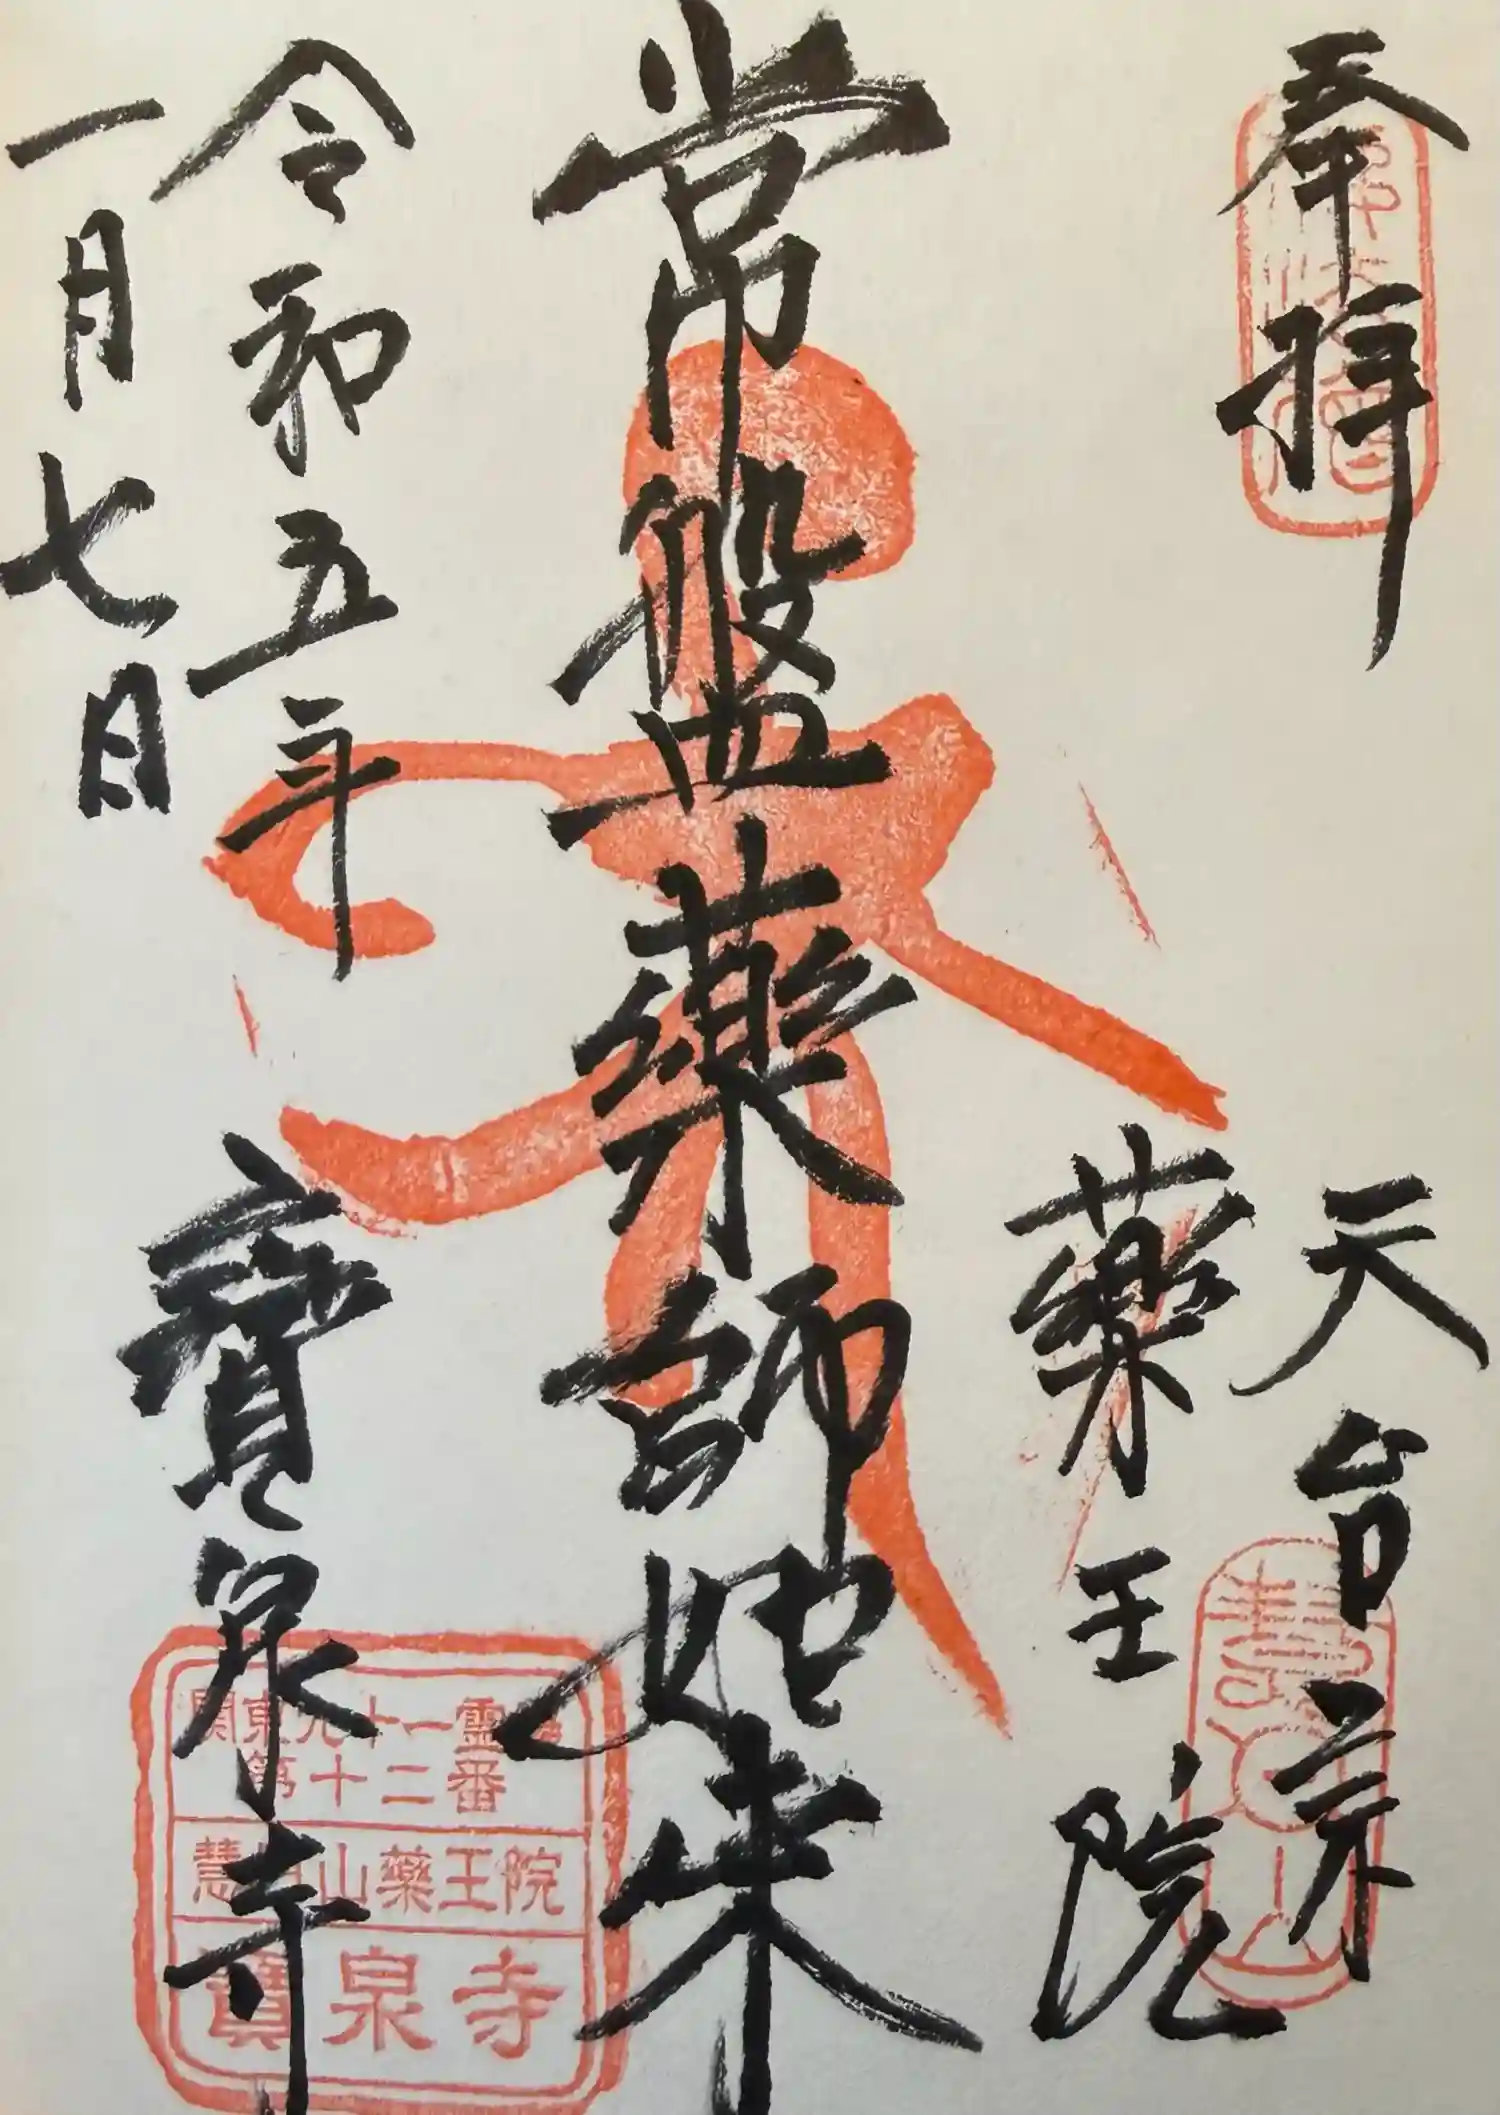 奉拝
天台宗
薬王院
常盤薬師如来
令和五年
一月七日
寳泉寺
関東九十一霊場
第十二番
山薬王院
寳泉寺